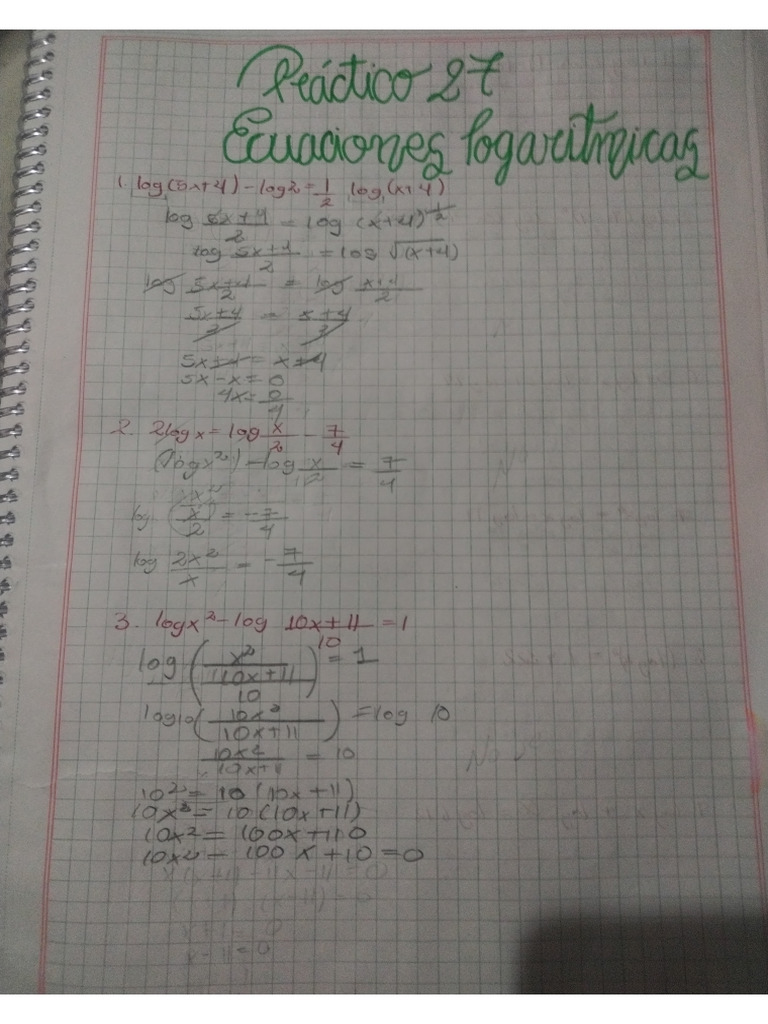 Práctico 27
Ecuaciones logaritmicas
1. log(5x+4) - log2 = 1/2 log(x+4)
log 5x+4/2 = log (x+4)^1/2
log 5x+4/2 = log √(x+4)
log 5x+4/2 = log x+4/2
5x+4/2 = x+4/2
5x+4 = x+4
5x-x = 0
4x = 0/4
2. 2logx = log x/2 - 7/4
(logx²) - log x/2 = 7/4
log x²/(x/2) = -7/4
log 2x²/x = -7/4
3. logx² - log 10x+11/10 = 1
log (x²/(10x+11/10)) = 1
log10 (10x²/10x+11) = log 10
10x²/10x+11 = 10
10² = 10 (10x+11)
10x² = 10(10x+11)
10x² = 100x+110
10x² - 100x+10 = 0
x+1 = 0
x-11 = 0